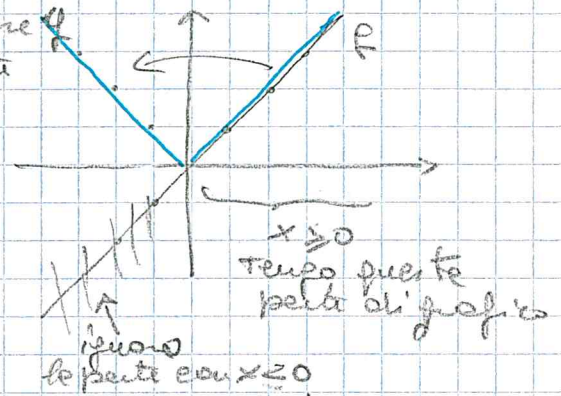 f
x ≥ 0
Tengo queste
parte di grafico
ignoro
le parte con x ≤ 0